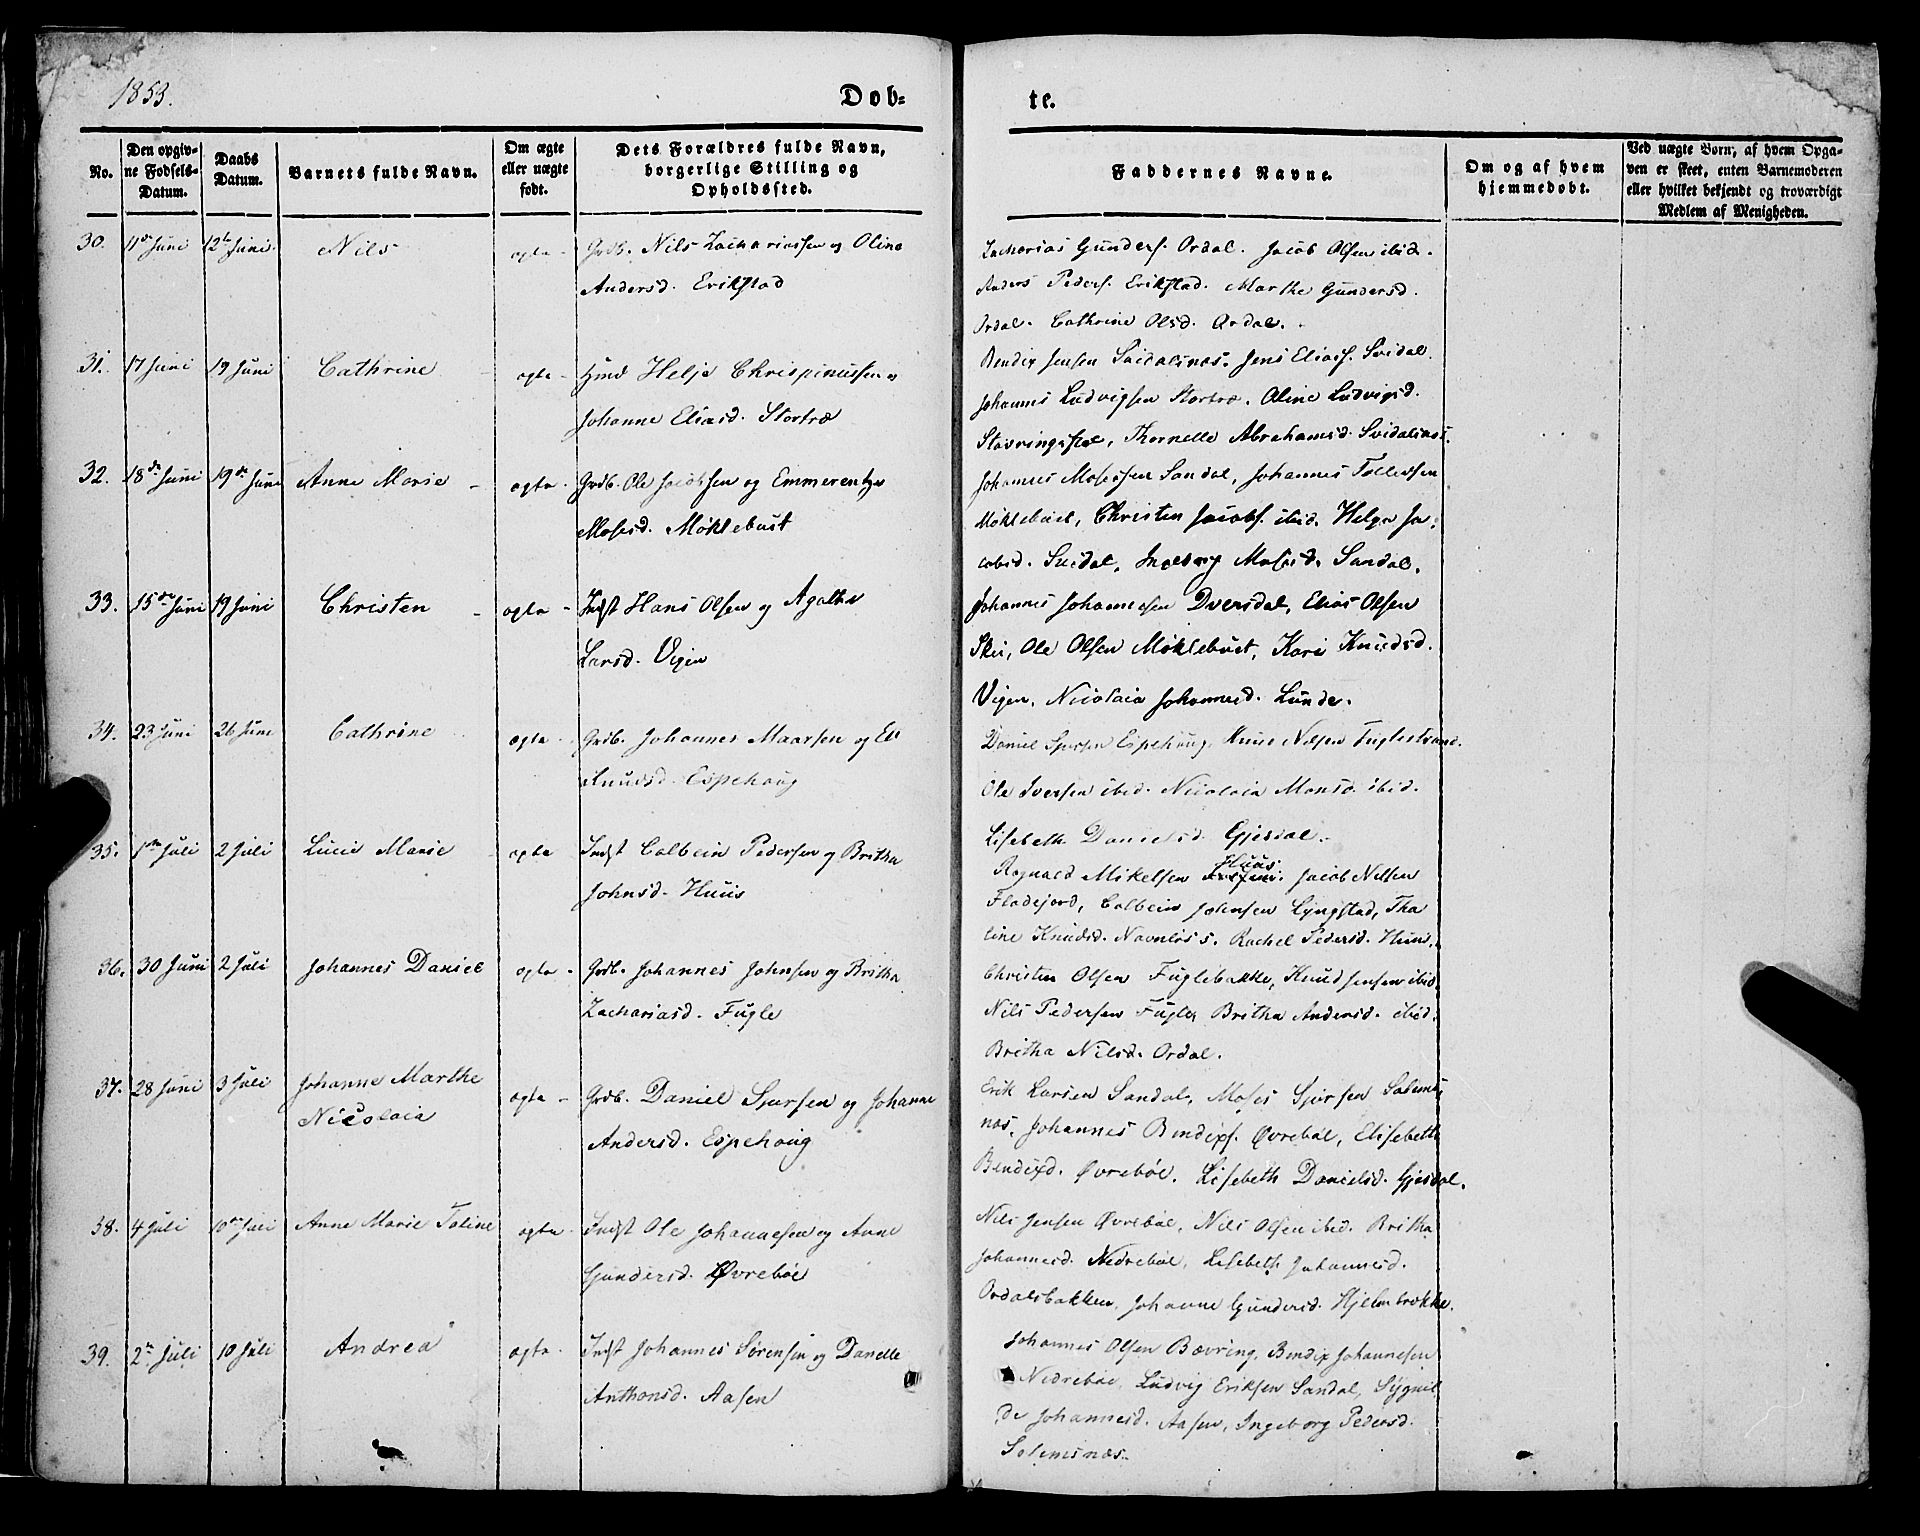 1853.
Døb=
te.
No.
Den opgiv-
ne Fødsels-
Datum.
Daabs
Datum.
Barnets fulde Navn.
Om ægte
eller uægte
født.
Dets Forældres fulde Navn,
borgerlige Stilling og
Opholdssted.
Faddernes Navne.
Om og af hvem
hjemmedøbt.
Ved uægte Børn, af hvem Opga-
ven er skeet, enten Barnemoderen
eller hvilket bekjendt og troværdigt
Medlem af Menigheden.
30. 11te Juni 12te Juni Nils ægte Grdb. Nils Zachariassen og Oline
Andersd. Erikstad
Zacharias Gunders. Ordal. Jacob Olsen ibid.
Anders Peders. Erikstad. Marthe Gundersd.
Ordal. Cathrine Olsd. Ordal.
31. 17 Juni 19 Juni Cathrine ægte Hmd Helje Chrispinussen og
Johanne Eliasd. Stortræ
Bendix Jensen Svidalsnæs. Jens Elias. Svidal.
Johannes Ludvigsen Stortræ. Oline Ludvigsd.
Støvringsfloe, Thornelle Abrahamsd. Svidalsnæs.
32. 18de Juni 19de Juni Anne Marie ægte Grdb. Ole Jacobsen og Emmerentze
Mosesd. Møklebust
Johannes Mosessen Sandal, Johannes Tollefsen
Møklebust, Christen Jacobs. ibid. Helge Ja-
cobsd. Svidal, Ingeborg Mosesd. Sandal.
33. 15de Juni 19 Juni Christen ægte Indst Hans Olsen og Agathe
Larsd. Vigen
Johannes Johannesen Dversdal, Elias Olsen
Skei, Ole Olsen Møklebust, Kari Knudsd.
Vigen, Nicolaia Johannesd. Lunde.
34. 23 Juni 26 Juni Cathrine ægte Grdb. Johannes Maarsen og Eli
Knudsd. Espehoug
Daniel Sjursen Espehoug, Knud Nilsen Fuglestrand.
Ole Iversen ibid. Nicolaia Monsd. ibid.
Lisebeth Danielsd. Gjesdal.
35. 1ste Juli 2 Juli Lucie Marie ægte Indst Colbein Pedersen og Britha
Johnsd. Huus
Ragnald Mikelsen Huus. Jacob Nilsen
Fladejord, Colbein Johnsen Lyngstad, Tha
line Knudsd. Navnløs s. Rachel Pedersd. Huus.
36. 30 Juni 2 Juli Johannes Daniel ægte Grdb. Johannes Johnsen og Britha
Zachariasd. Fugle
Christen Olsen Fuglebakke, Knud Jensen ibid.
Nils Pedersen Fugle, Britha Andersd. ibid.
Britha Nilsd. Ordal.
37. 28 Juni 3 Juli Johanne Marthe
Nicolaia ægte Grdb. Daniel Sjursen og Johanne
Andersd. Espehoug
Erik Larsen Sandal, Moses Sjursen Solems
næs, Johannes Bendixs. Øvrebøe, Elisebeth
Bendixd. Øvrebøe. Lisebeth Danielsd. Gjesdal.
38. 4 Juli 10de Juli Anne Marie Toline ægte Indst Ole Johannessen og Anne
Gundersd. Øvrebøe
Nils Jensen Øvrebøe, Nils Olsen ibid. Britha
Johannesd. Nedrebøe, Lisebeth Johannesd.
Ordalsbakken, Johanne Gundersd. Hjelmbrække.
39. 2n Juli 10 Juli Andrea ægte Indst Johannes Sørensen og Danelle
Anthonsd. Aasen
Johannes Olsen Bævring, Bendix Johannesen
Nedrebøe, Ludvig Eriksen Sandal, Sygnil
de Johannesd. Aasen, Ingeborg Pedersd.
Solemsnæs.